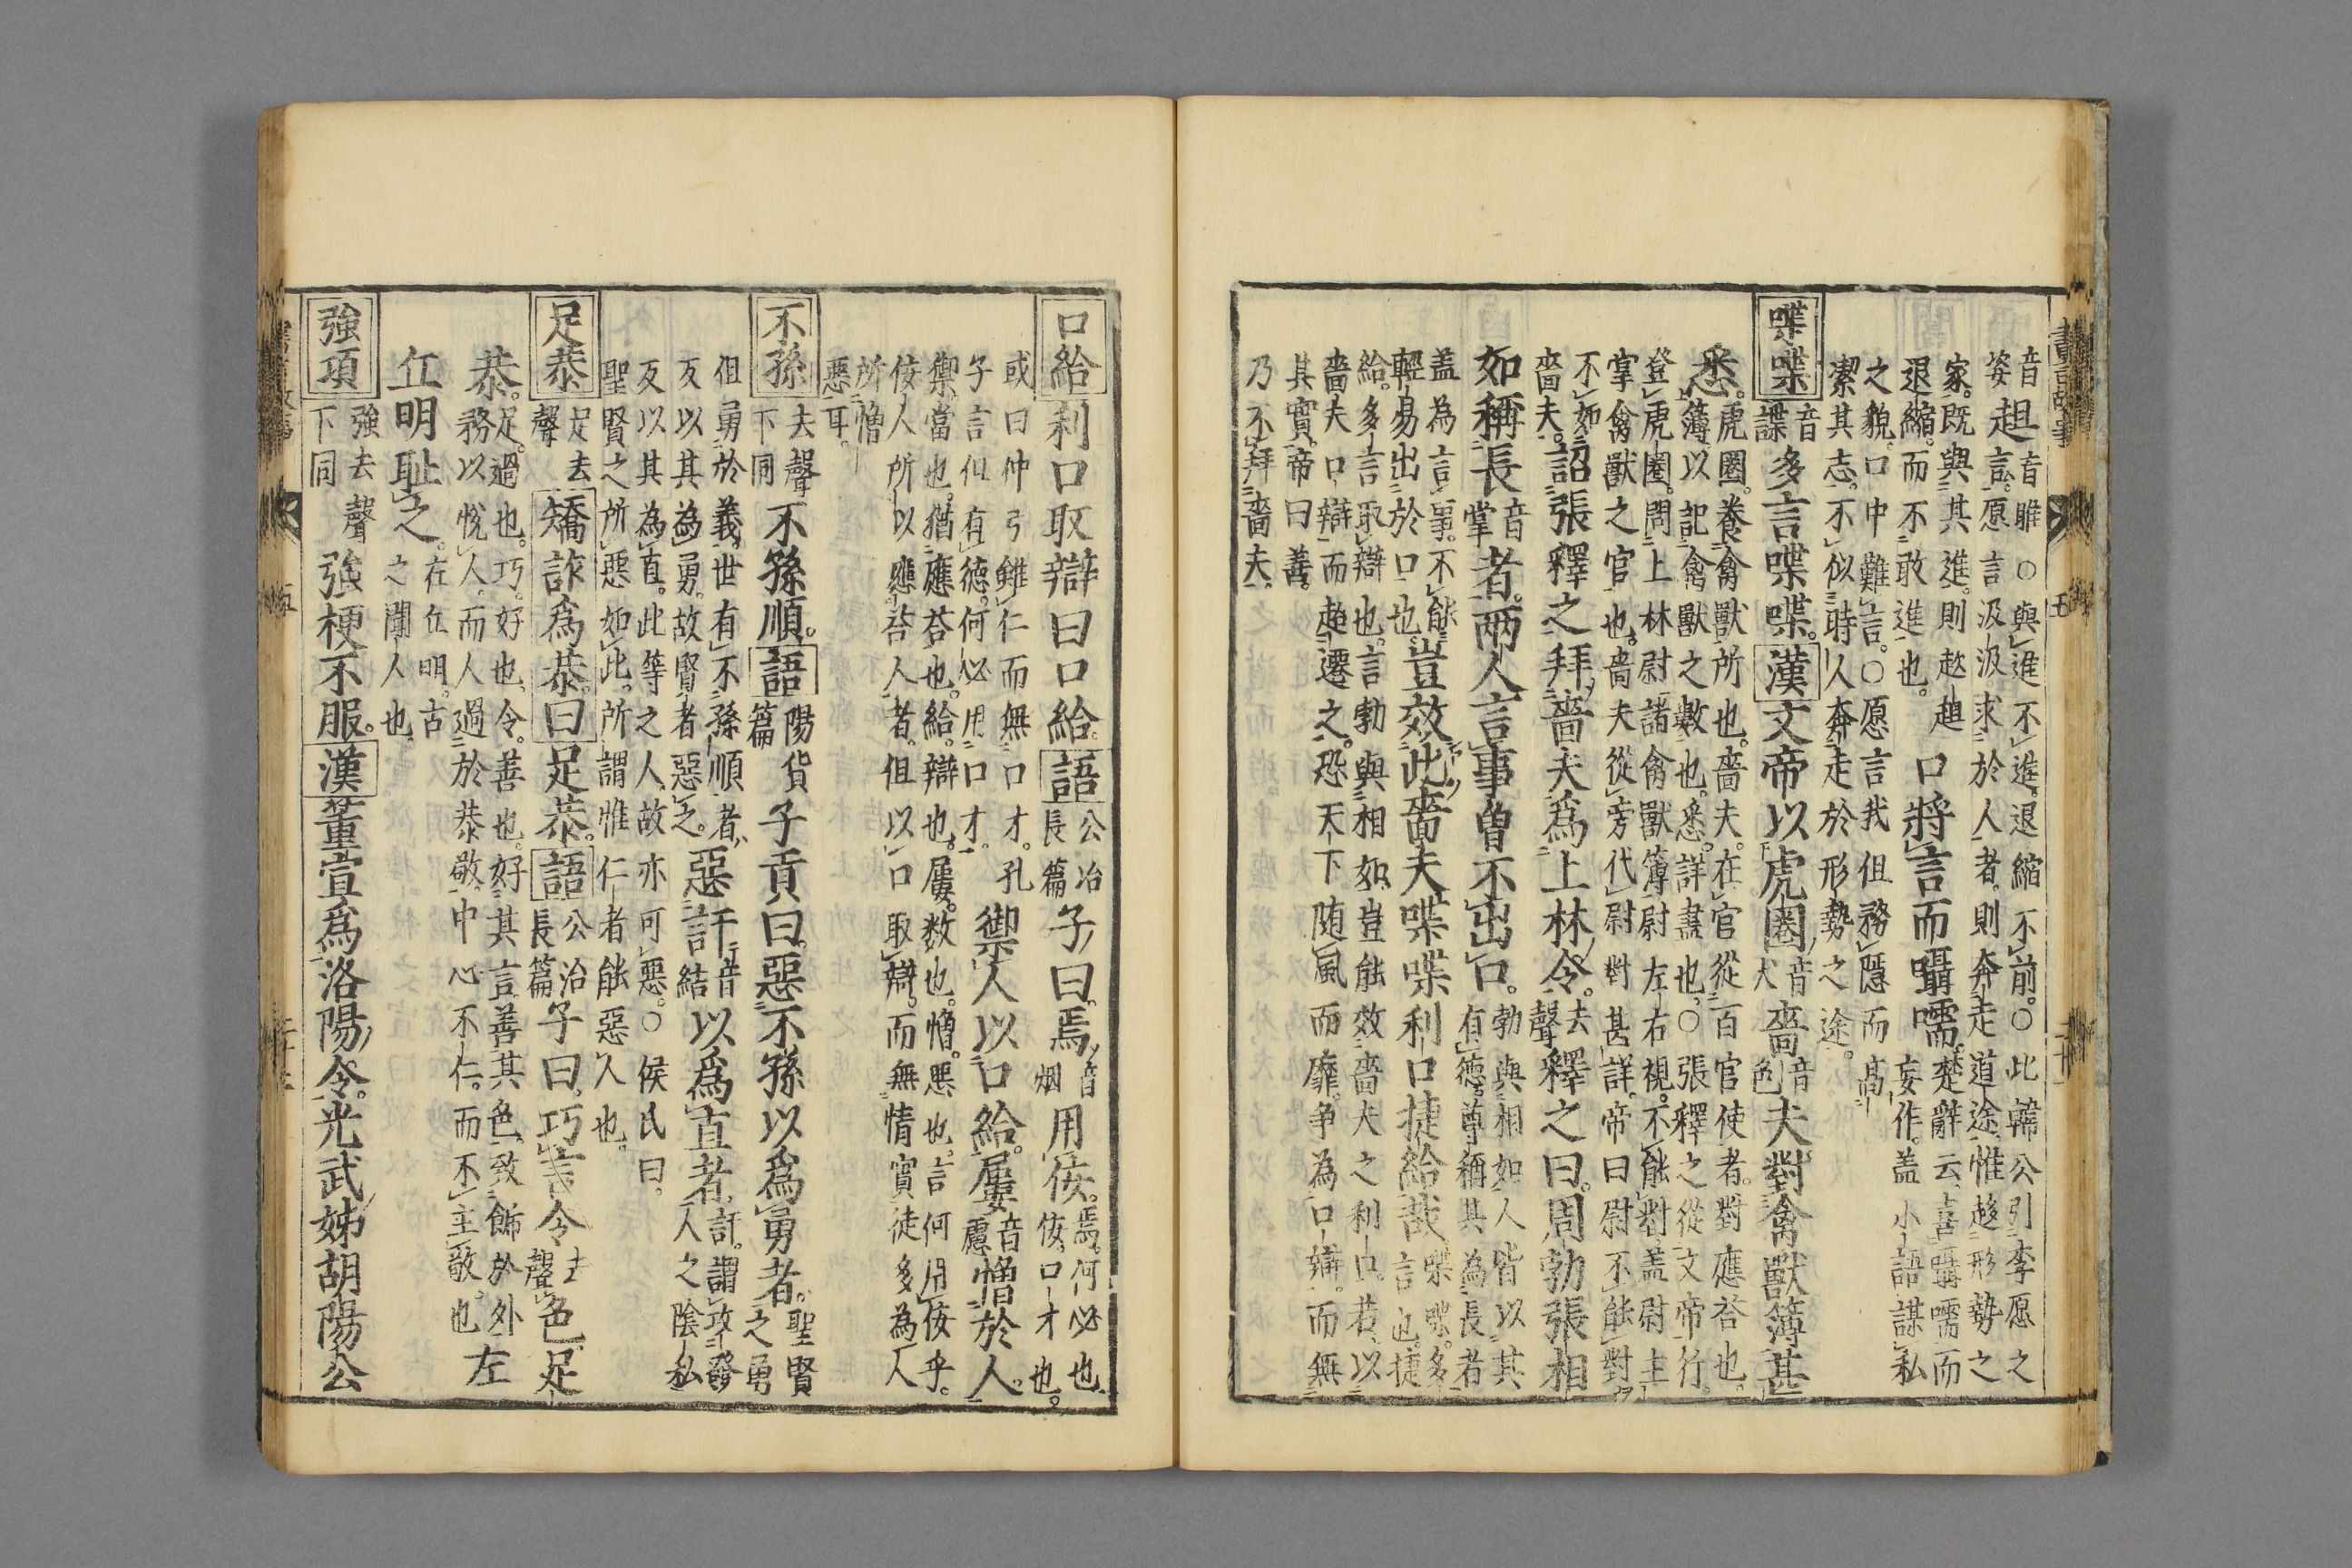 音趄音雎○與進不進退縮不前○此韓公引李愿之
姿趄言愿言汲汲求於人者則奔走道途惟趨形勢之
家既與其進則趑趄
退縮而不敢進也
口將言而囁嚅
楚辭云喜囁嚅而
妄作盖小語謀私
之貌口中難言○愿言我但務隱而高
潔其志不似時人奔走於形勢之途
喋喋
音
諜
多言喋喋漢文帝以虎圈
音
犬
嗇
音
色
夫對禽獸簿甚
悉
虎圈養禽獸所也嗇夫在官從百官使者對應荅也
簿以記禽獸之數也悉詳盡也○張釋之從文帝行
登虎圈問上林尉諸禽獸簿尉左右視不能對盖尉主
掌禽獸之官也嗇夫從旁代尉對甚詳帝曰尉不能對
不如
嗇夫
詔張釋之拜嗇夫爲上林令
去
聲
釋之曰周勃張相
如稱長
音
掌
者兩人言事曾不出口
勃與相如人皆以其
有德尊稱其為長者
盖為言事不能
輕易出於口也
豈效此嗇夫喋喋利口捷給哉
喋喋多
言也捷
給多言取辯也言勃與相如豈能效嗇夫之利口若以
嗇夫口辯而超遷之恐天下随風而靡争為口辯而無
其實帝曰善
乃不拜嗇夫
口給
利口取辯曰口給
語
公冶
長篇
子曰焉
音
烟
用佞
焉何必也
佞口才也
或曰仲弓雖仁而無口才孔
子言但有德何必用口才
禦人以口給屢
音
慮
憎於人
禦當也猶應荅也給辯也屢数也憎惡也言何用佞乎
佞人所以應荅人者但以口取辯而無情實徒多為人
所憎
惡耳
不孫
去聲
下同
不孫順
語
陽貨
篇
子貢曰惡不孫以爲勇者
聖賢
之勇
但勇於義世有不孫順者
友以其為勇故賢者惡之
惡訐
音
結
以爲直者
訐謂攻發
人之陰私
友以其為直此等之人故亦可惡○侯氏曰
聖賢之所惡如此所謂惟仁者能惡人也
足恭
足去
聲
矯詐爲恭曰足恭
語
公治
長篇
子曰巧言令
去
聲
色足
恭
足過也巧好也令善也好其言善其色致飾於外
務以悅人而人過於恭敬中心不仁而不主敬也
左
丘明耻之
在丘明古
之聞人也
強項
強去聲
下同
強梗不服漢董宣爲洛陽令光武姊胡陽公